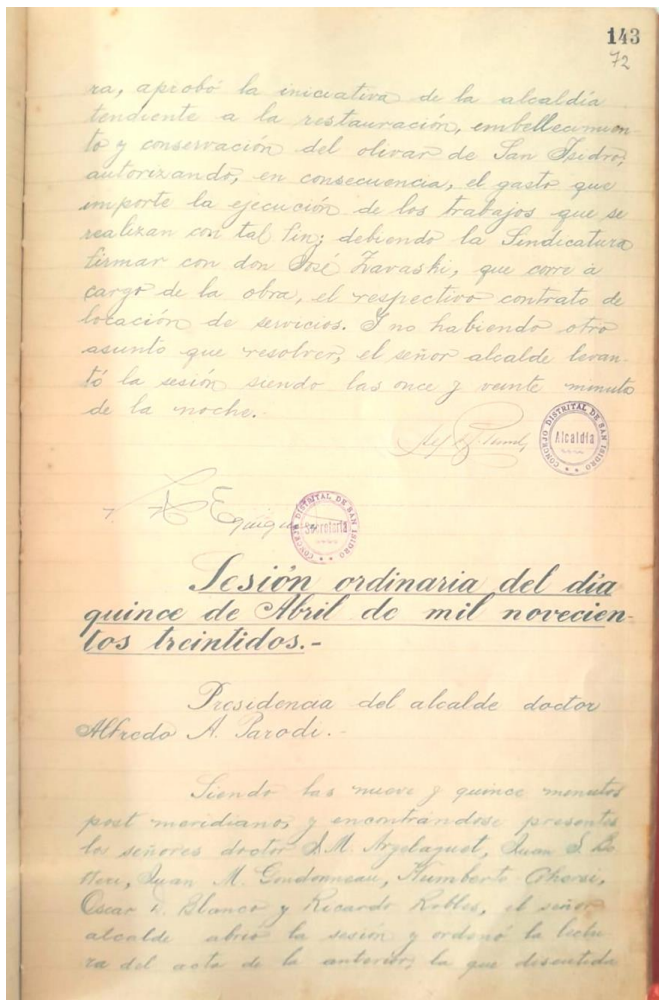 143
72
ra, aprobó la iniciativa de la alcaldía
tendiente a la restauración, embellecimien-
to y conservación del olivar de San Isidro,
autorizando, en consecuencia, el gasto que
importe la ejecución de los trabajos que se
realizan con tal fin; debiendo la Sindicatura
firmar con don José Zavaski, que corre á
cargo de la obra, el respectivo contrato de
locación de servicios. Y no habiendo otro
asunto que resolver, el señor alcalde levan-
tó la sesión siendo las once y veinte minuto
de la noche.
CONCEJO DISTRITAL DE SAN ISIDRO
Alcaldía
CONCEJO DISTRITAL DE SAN ISIDRO
Secretaría
Sesión ordinaria del día
quince de Abril de mil novecien-
tos treintidos.-
Presidencia del alcalde doctor
Alfredo A. Parodi.-
Siendo las nueve y quince minutos
post meridiano, y encontrándose presentes
los señores doctor J. M. Juan S.
Juan M. Goudonneau, Humberto
Oscar Blanco y Ricardo Robles, el señor
alcalde abrió la sesión y ordenó la lectu
ra del acta de la anterior, la que discutida